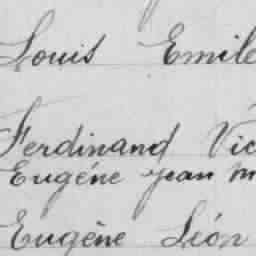 Louis Emile
Ferdinand Vic
Eugéne jean m
Eugène Léon